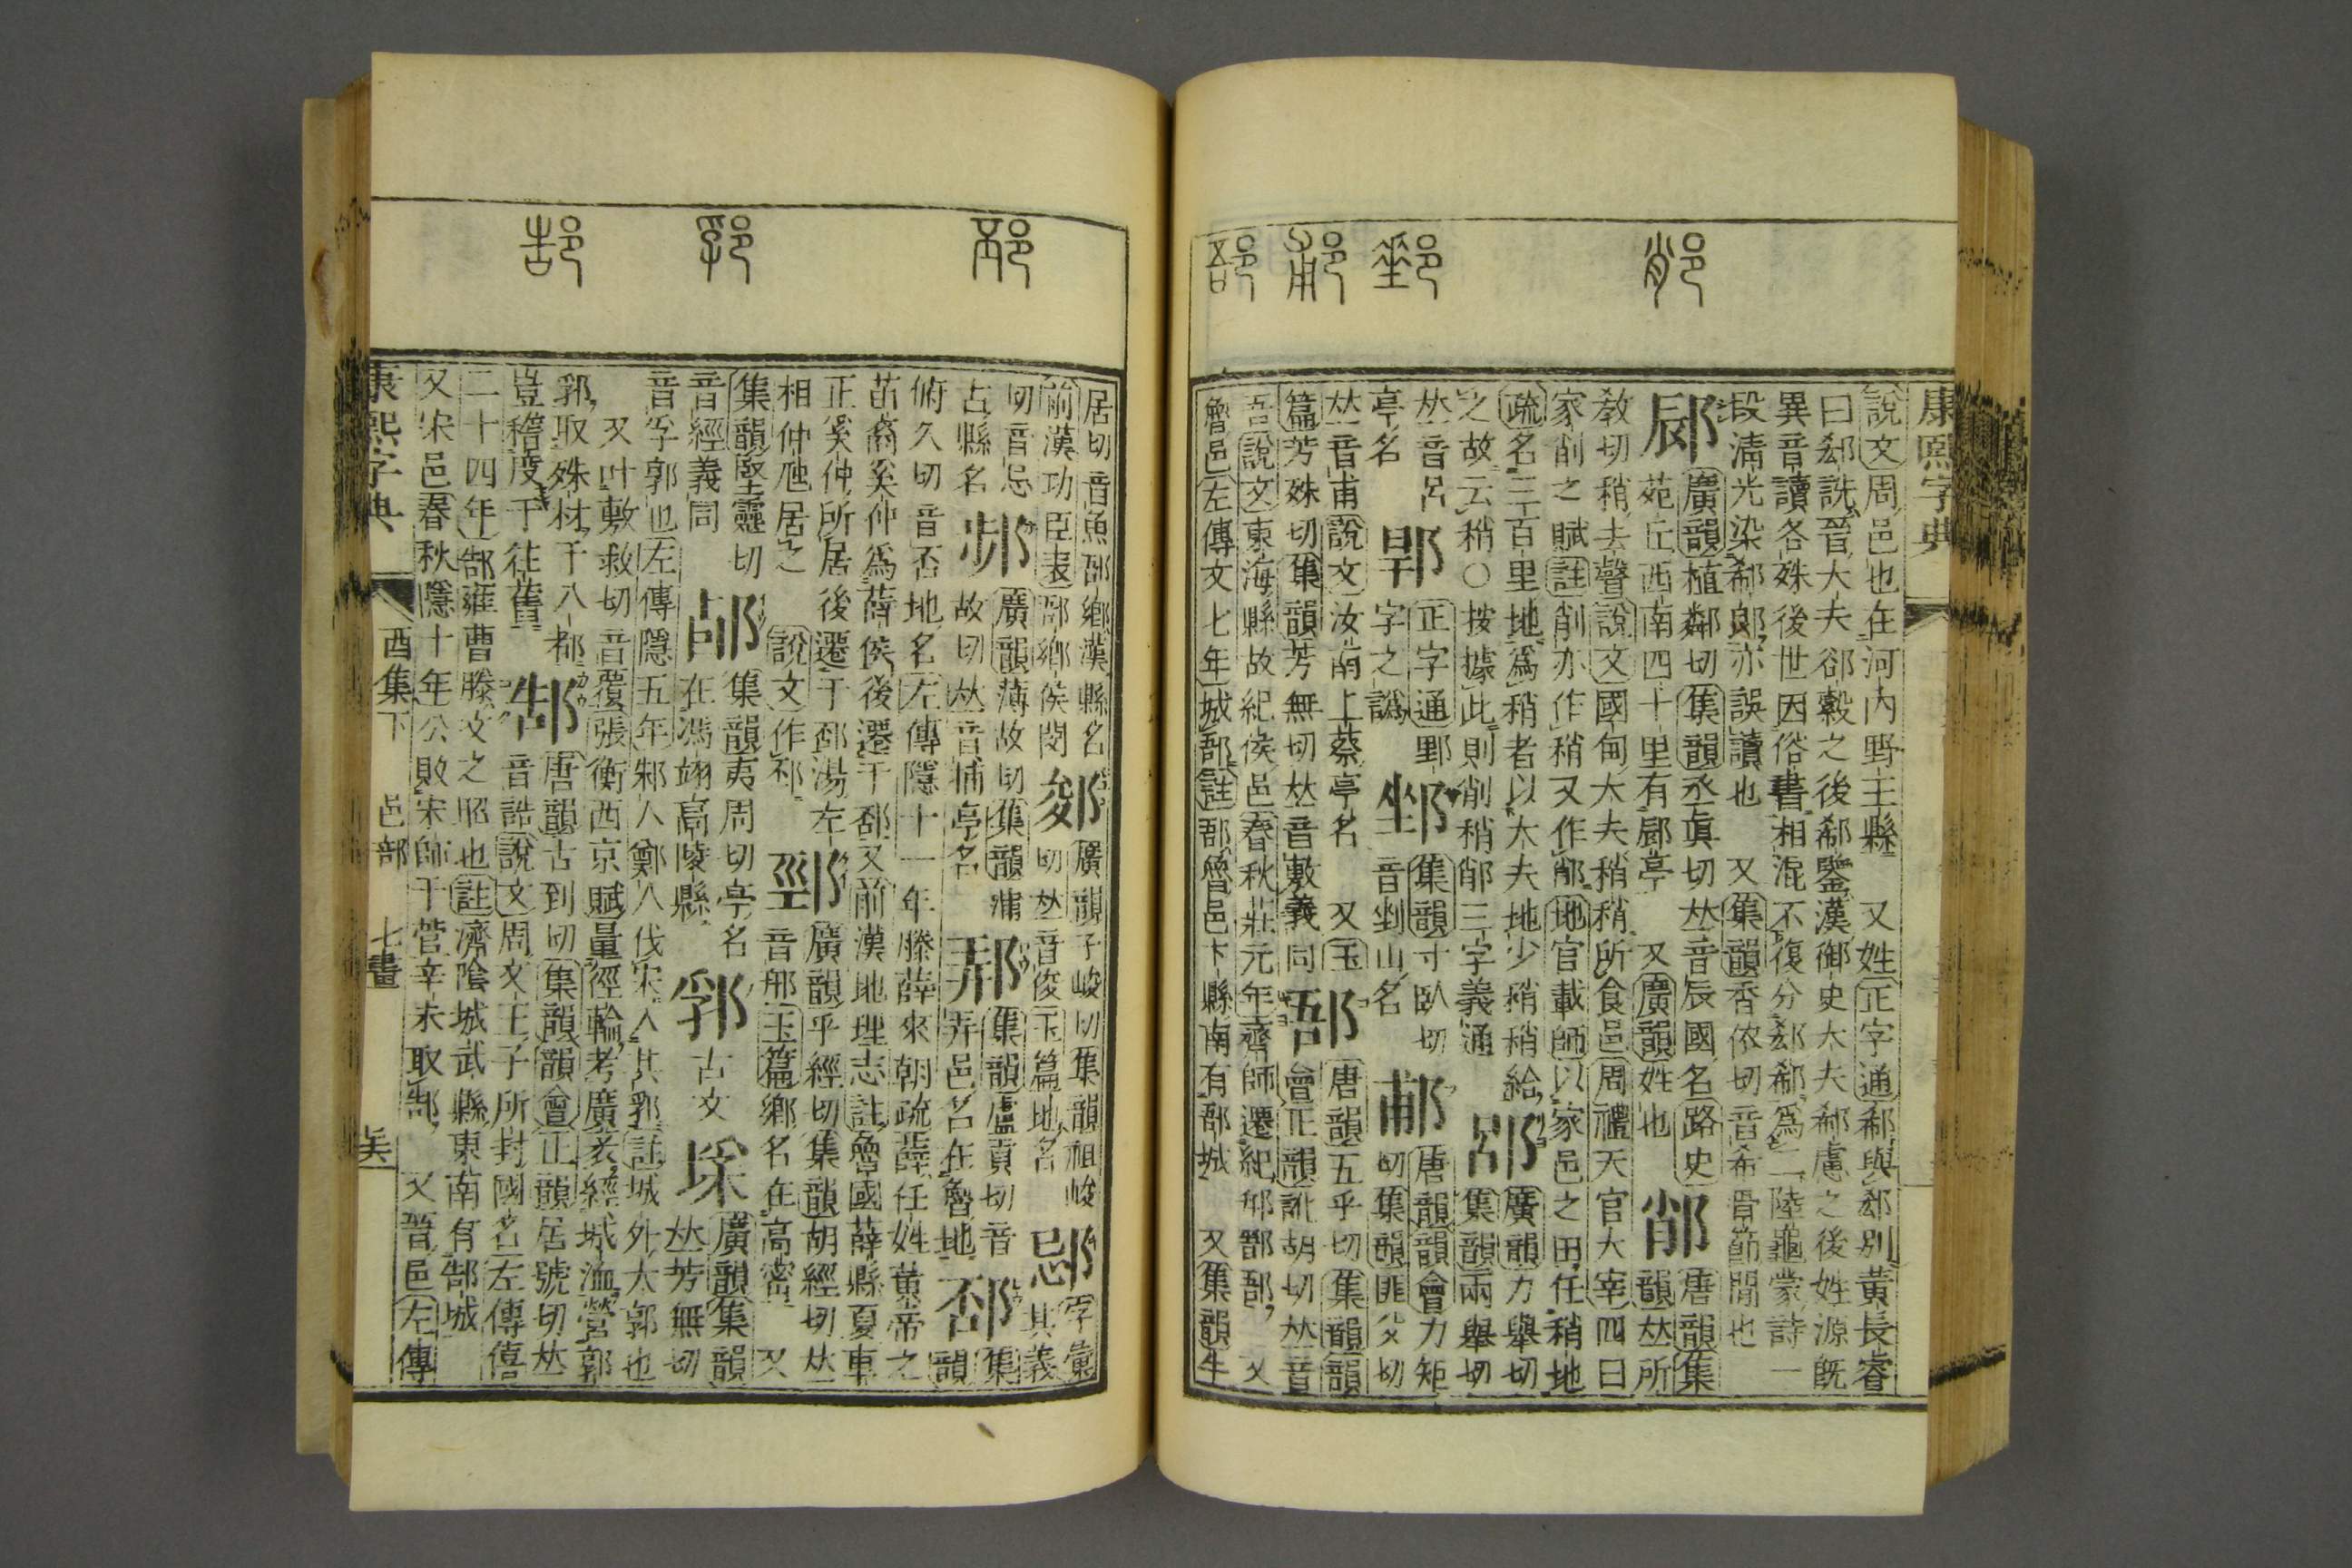 康熙字典
說文周邑也在河内野王縣　又姓正字通郗與郄別黃長睿
曰郄詵晉大夫郤縠之後郗鑒漢御史大夫郗慮之後姓源旣
異音讀各殊後世因俗書相混不復分郄郗爲二陸龜蒙詩一
段淸光染郗郎亦誤讀也　又集韻香依切音希骨節閒也
廣韻植鄰切集韻丞眞切𠀤音辰國名路史　唐韻集
苑丘西南四十里有亭　又廣韻姓也　韻𠀤所
敎切稍去聲說文國甸大夫稍稍所食邑周禮天官大宰四曰
家削之賦註削亦作稍又作地官載師以家邑之田任稍地
疏名三百里地爲稍者以大夫地少稍稍給　郘　廣韻力舉切
之故云稍○按據此則削稍三字義通　集韻兩舉切
𠀤音呂　正字通野　集韻寸臥切　郙　唐韻韻會力矩
亭名　字之譌　音剉山名　切集韻匪父切
𠀤音甫說文汝南上蔡亭名　又玉　郚　唐韻五乎切集韻韻
篇芳殊切集韻芳無切𠀤音敷義同　會正韻訛胡切𠀤音
吾說文東海縣故紀侯邑春秋莊元年齊師遷紀郱鄑郚　又
魯邑左傳文七年城郚註郚魯邑卞縣南有郚城　又集韻牛
居切音魚郚鄉漢縣名　廣韻子峻切集韻祖峻
前漢功臣表郚鄉侯閔　切𠀤音俊玉篇地名　字彙
切音忌　廣韻薄故切集韻蒲　集韻盧貢切音　其義
古縣名　故切𠀤音捕亭名　弄邑名在魯地　集韻
俯久切音否地名左傳隱十一年滕薛來朝疏薛任姓黃帝之
苗裔奚仲爲薛侯後遷于邳又前漢地理志註魯國薛縣夏車
正奚仲所居後遷于邳湯左　廣韻乎經切集韻胡經切𠀤
相仲虺居之　說文作邳　音邢玉篇鄉名在高密　又
集韻堅靈切　集韻夷周切亭名　郛　古文　廣韻集韻
音經義同　在馮翊高陵縣　𠀤芳無切
音孚郭也左傳隱五年邾人鄭人伐宋入其郛註城外大郭也
又叶敷救切音覆張衡西京賦量徑輪考廣袤經城洫營郭
郛取殊材于八都　郜　唐韻古到切集韻韻會正韻居號切𠀤
豈稽度于往舊　音誥說文周文王子所封國名左傳僖
二十四年郜雍曹滕文之昭也註濟陰城武縣東南有郜城
又宋邑春秋隱十年公敗宋師于菅辛未取郜　又晉邑左傳
康熙字典　酉集下　邑部　七畫